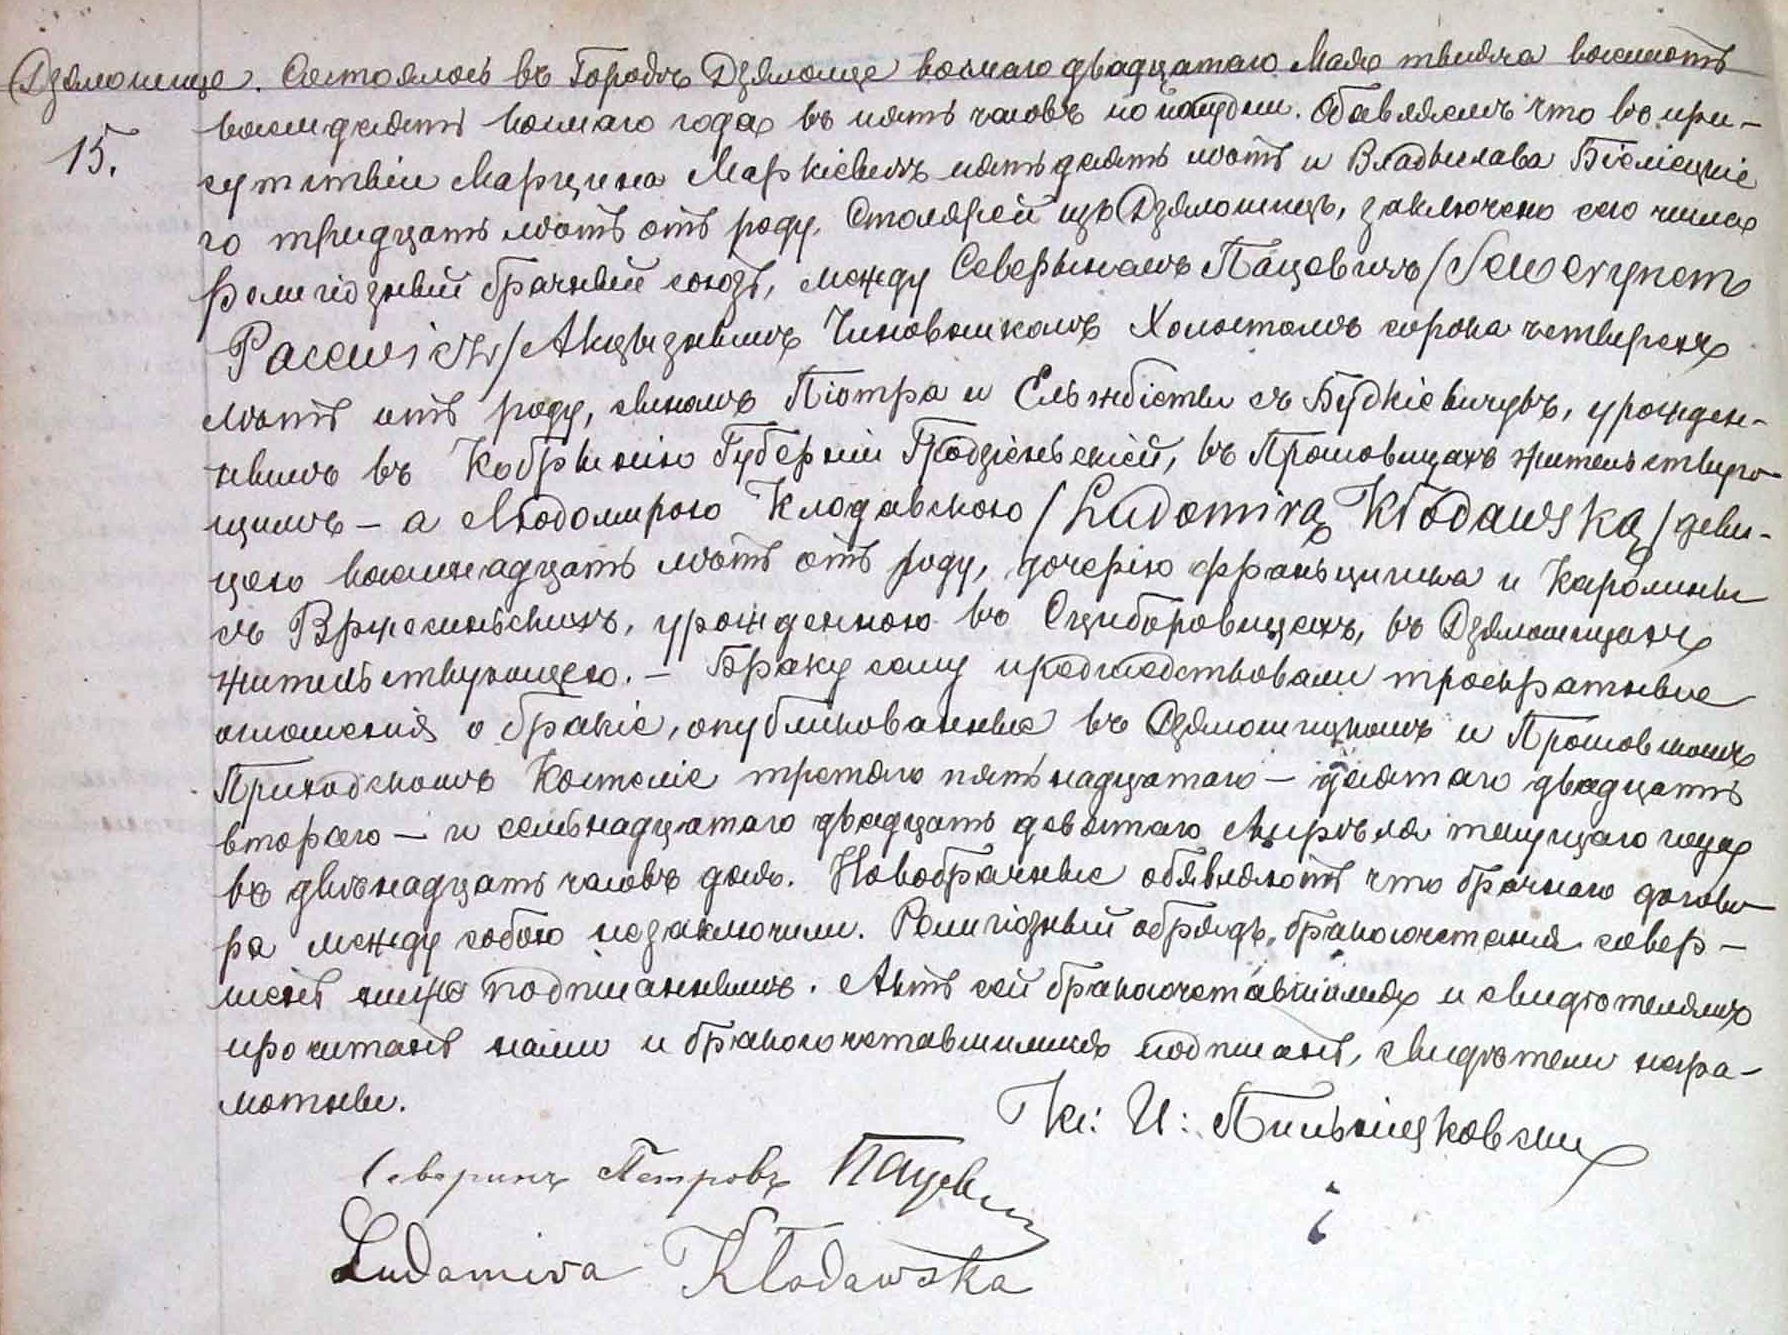 Дзялошице. Состоялось въ Городѣ Дзялошице восмаго двадцатаго Мая тысяча восемсотъ
15.
восемдесятъ восмаго года въ пять часовъ по полудни. Обявляемъ что въ при-
сутствіи Марцина Маркіевичъ пятьдесятъ лѣтъ и Владыслава Бѣлецкіе
го тридцать лѣтъ отъ роду, Столярей изъ Дзялошицъ, заключено сего числа
религіозный брачный союзъ, между Северыномъ Пацевичъ /Sewerynem
Pacewicz/ Акцызнымъ Чиновникомъ Холостомъ сорока четырехъ
лѣтъ отъ роду, сыномъ Піотра и Ельжбіеты съ Будкіевичувъ, урожден-
нымъ въ Кобрыню Губерніи Гродзіеньскіей, въ Прошовицахъ жительствую-
щимъ – а Людомирою Клодавскою /Ludomirą Kłodawską/ деви-
цею восемнадцать лѣтъ отъ роду, дочерію Франьцишка и Каролины
съ Вржесиньскихъ, урожденною въ Сциборовицахъ, въ Дзялошицахъ
жительствующею. – Браку сему предшедствовали троекратные
оглошенія о бракіе, опубликованные въ Дзялошицкомъ и Прошовскомъ
Приходскомъ Костеліе третяго пятьнадцатаго – десятаго двадцать
втораго – и семьнадцатаго двадцать девятаго Апрѣля текущаго года
въ двѣнадцать часовъ дня. Новобрачные обявляютъ что брачнаго догово-
ра между собою незаключили. Религіозный обрядъ бракосочетанія совер-
шенъ ниже подписаннымъ. Актъ сей бракосочетавшимся и свидѣтелямъ
прочитанъ нами и бракосочетавшимися подписанъ, свидѣтели негра-
мотны.
Кс: И:
Северинъ Петровъ Пацевичъ
Ludomira Kłodawska